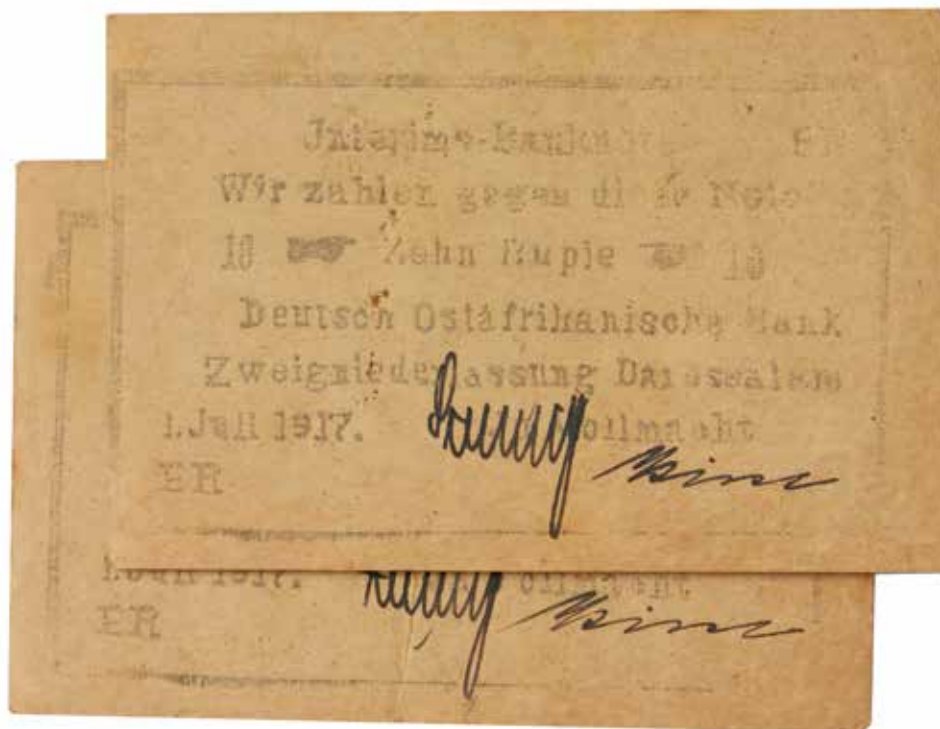 Interims-Banknote ER
Wir zahlen gegen diese Note
10 Zehn Rupie 10
Deutsch Ostafrikanische Bank
Zweigniederlassung Daressalam
1. Juli 1917. Vollmacht
ER
1. Juli 1917. Vollmacht
ER